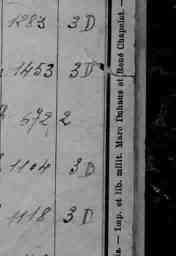 1283 3 D
1453 3 D
572 2
1104 3 D
1118 3 D
— Imp. et lib. milit. Marc Duhaus et René Chapelot. —